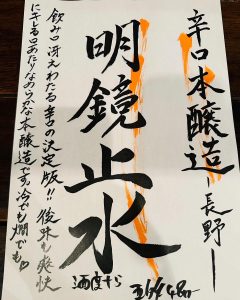 辛口本醸造 ー長野ー
明鏡止水
飲み口 冴えわたる辛口の決定版!! 後味も爽快
にキレる口あたりなめらかな本醸造です。冷でも燗でも♡
酒度+5